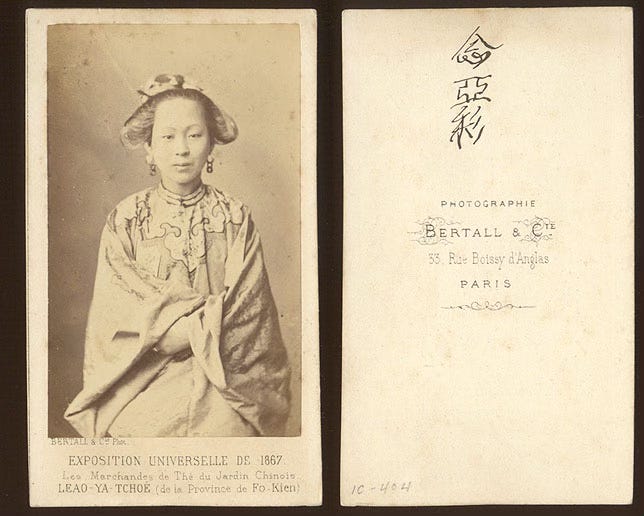 BERTALL & Cie Phot.
EXPOSITION UNIVERSELLE DE 1867.
Les Marchandes de Thé du Jardin Chinois.
LEAO-YA-TCHOË (de la Province de Fo-Kien)
亞
彩
PHOTOGRAPHIE
BERTALL & CIE
33, Rue Boissy d'Anglas
PARIS
IC-404